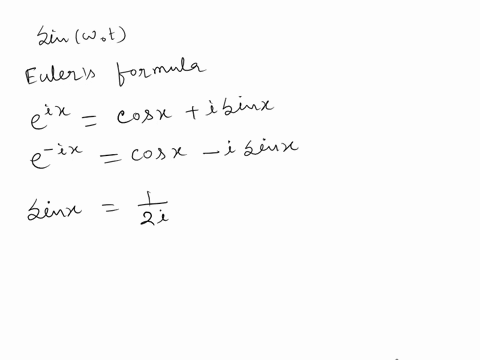 sin(ω₀t)
Euler's formula
e^{ix} = cosx + i sinx
e^{-ix} = cosx - i sinx
sinx = \frac{1}{2i}